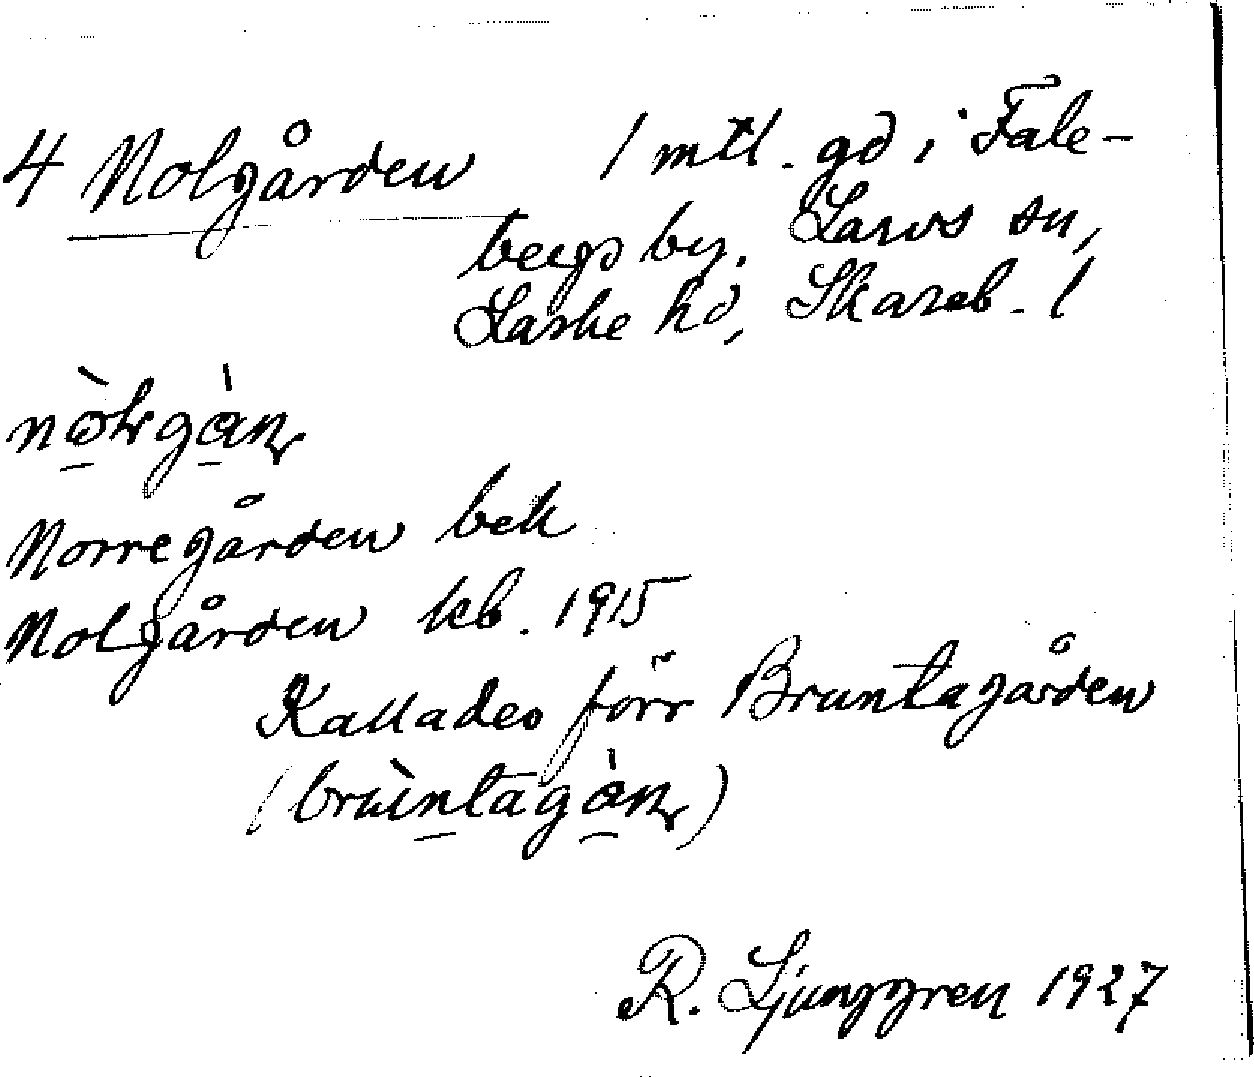 4 Nolgården 1 mtl. gd i Fale-
bergs by. Larvs sn,
Laske hd, Skarab. l
Norregården bek
Nolgården kb. 1915
Kallades förr Bruntagården
R. Ljunggren 1927